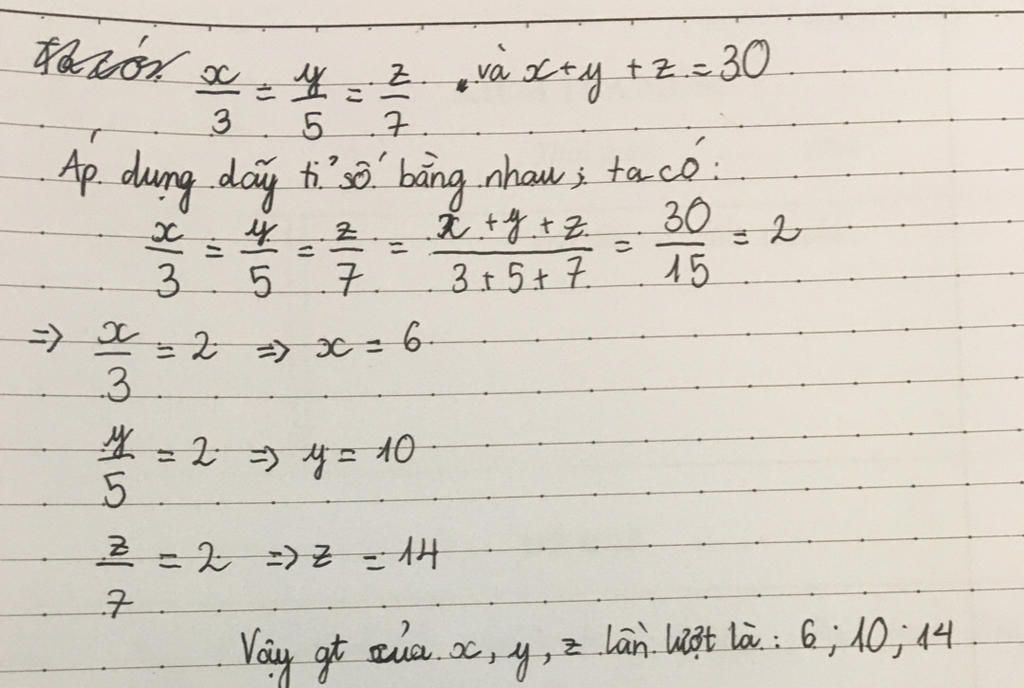 Ta có: x/3 = y/5 = z/7 và x+y+z=30
Áp dụng dãy tỉ số bằng nhau; ta có:
x/3 = y/5 = z/7 = (x+y+z)/(3+5+7) = 30/15 = 2
=> x/3 = 2 => x = 6
y/5 = 2 => y = 10
z/7 = 2 => z = 14
Vậy gt của x, y, z lần lượt là: 6; 10; 14